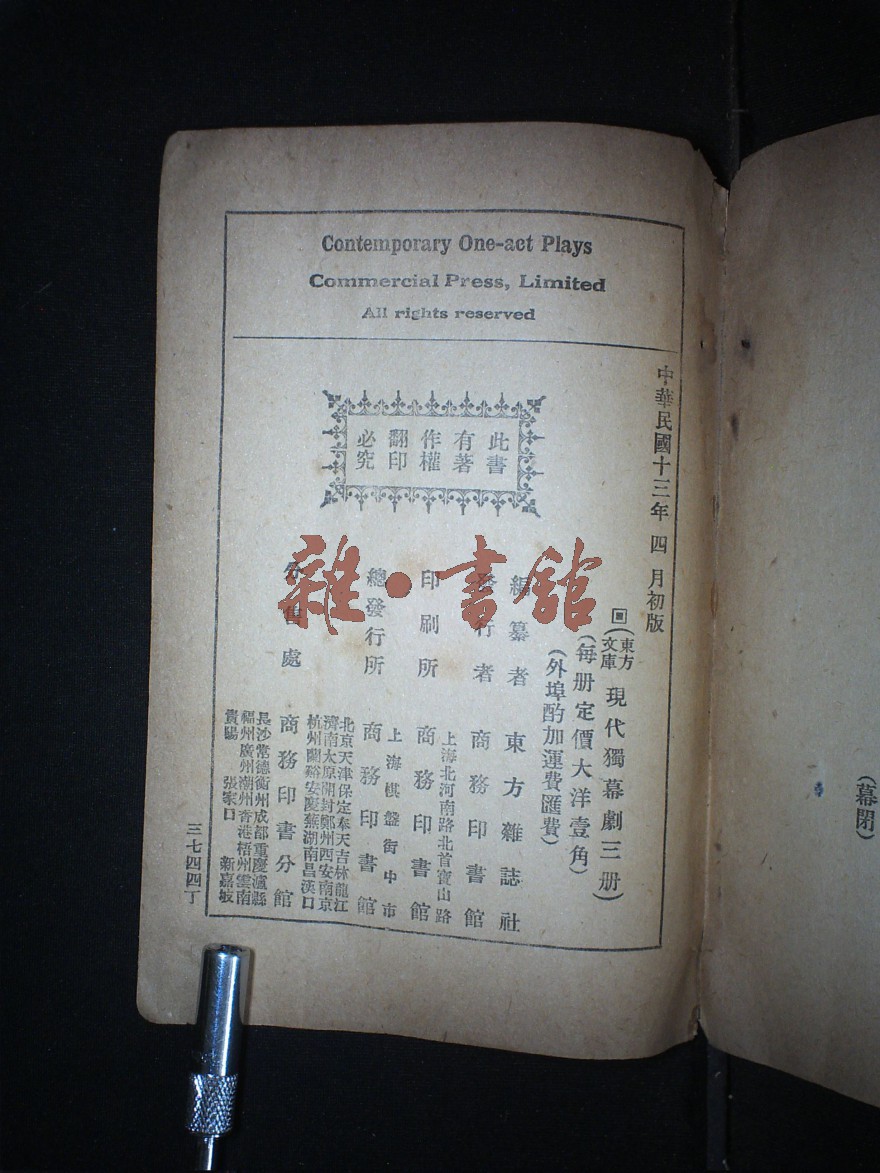 Contemporary One-act Plays
Commercial Press, Limited
All rights reserved
中華民國十三年四月初版
此書
有著
作權
翻印
必究
回(東方文庫)現代獨幕劇三册)
(每册定價大洋壹角)
(外埠酌加運費匯費)
編纂者 東方雜誌社
發行者 商務印書館
上海北河南路北首寶山路
印刷所 商務印書館
上海棋盤街中市
總發行所 商務印書館
北京天津保定奉天吉林龍江
濟南太原開封鄭州西安南京
杭州蘭谿安慶蕪湖南昌漢口
分售處 商務印書分館
長沙常德衡州成都重慶瀘縣
福州廣州潮州香港梧州雲南
貴陽 張家口 新嘉坡
三七四四丁
(幕閉)
雜·書館